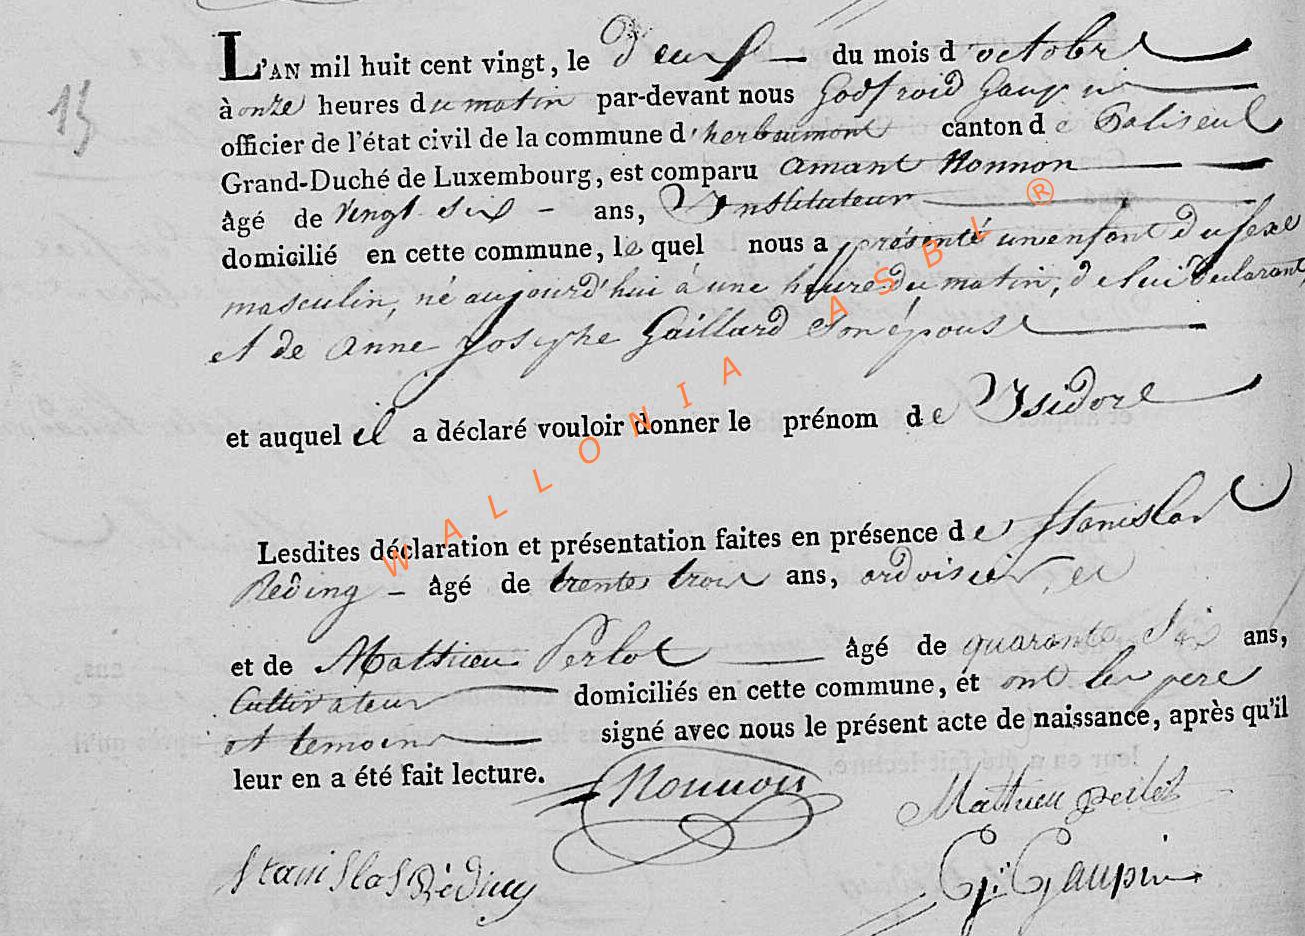 15
L'AN mil huit cent vingt, le deux du mois d'octobre
à onze heures du matin par-devant nous Godfroid Gaupin
officier de l'état civil de la commune d'herbeumont canton de Paliseul
Grand-Duché de Luxembourg, est comparu Amant Nonnon
âgé de vingt six ans, Instituteur
domicilié en cette commune, le quel nous a présenté un enfant du sexe
masculin, né aujourd'hui à une heure du matin, de lui déclarant,
et de Anne Josephe Gaillard son épouse
et auquel il a déclaré vouloir donner le prénom de Isidore
Lesdites déclaration et présentation faites en présence de Stanislas
Reding âgé de trente trois ans, ardoisier
et de Mathieu Perlot âgé de quarante six ans,
Cultivateur domiciliés en cette commune, et ont les pere
et temoins signé avec nous le présent acte de naissance, après qu'il
leur en a été fait lecture. Nonnon
Mathieu perlot
Stanislas Réding G: Gaupin
WALLONIA ASBL ®